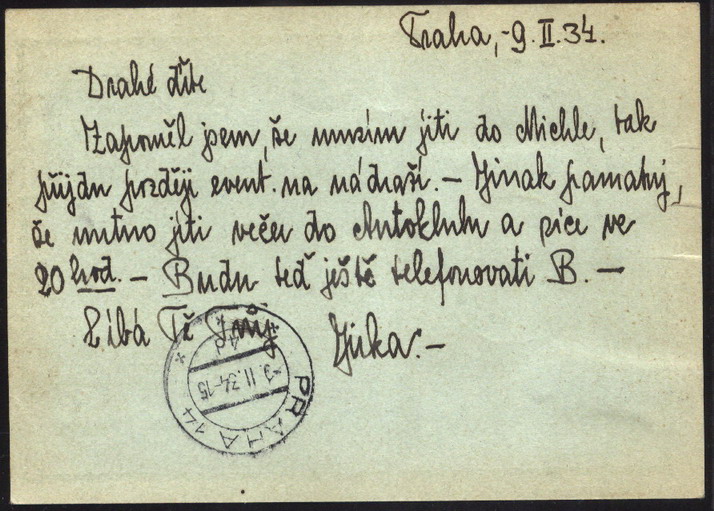 Praha, -9. II. 34.
Drahé dítě
Zapoměl jsem, že musím jíti do Michle, tak
přijdu později event. na nádraží. — Jinak pamatuj,
že nutno jíti večer do Autoklubu a sice ve
20 hod. — Budu teď ještě telefonovati B. —
Líbá Tě Tvůj Jirka. —
9. II. 34-15
PRAHA 14